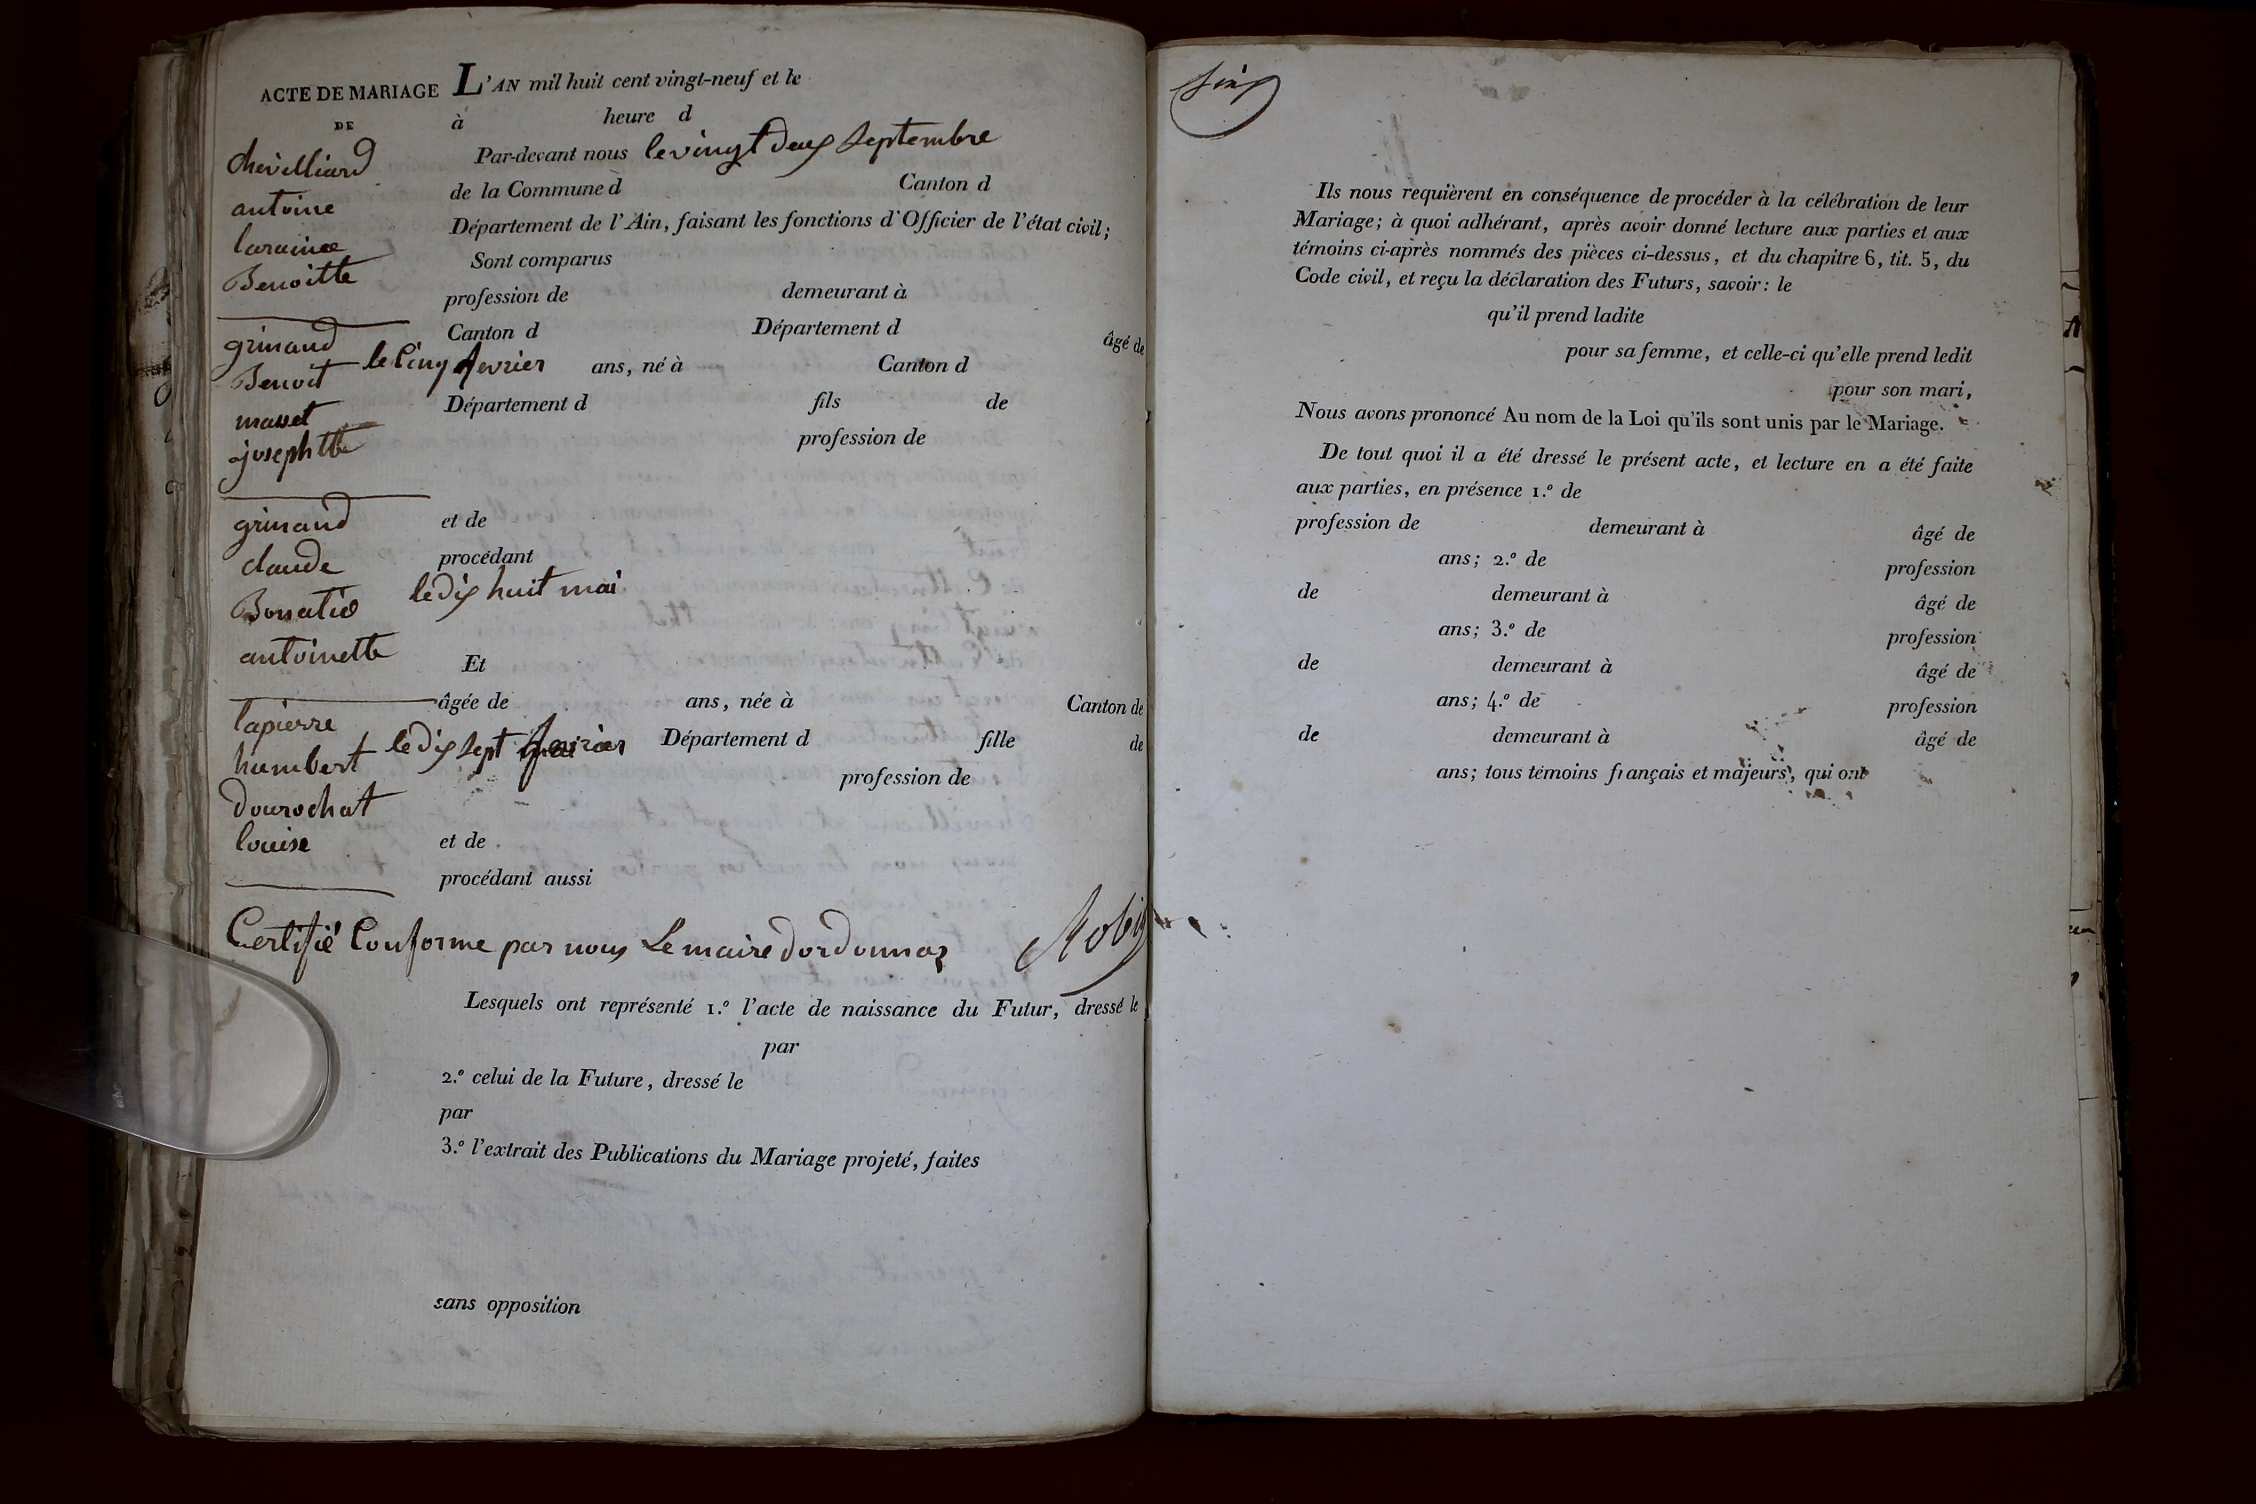 ACTE DE MARIAGE L'AN mil huit cent vingt-neuf et le
DE à heure d
chevilliard Par-devant nous le vingt deux Septembre
antoine de la Commune d Canton d
Département de l'Ain, faisant les fonctions d'Officier de l'état civil;
Sont comparus
Benoitte
profession de demeurant à
grinand Canton d Département d âgé de
Benoit le Cinq fevrier ans, né à Canton d
masset Département d fils de
josephtte profession de
grinand et de
claude procédant
Bonatie le dix huit mai
antoinette Et
âgée de ans, née à Canton de
lapierre
humbert le dix Sept fevrier Département d fille de
profession de
dourochat
louise et de
procédant aussi
Certifié Conforme par nous Le maire dordonnaz Robin
Lesquels ont représenté 1.º l'acte de naissance du Futur, dressé le
par
2.º celui de la Future, dressé le
par
3.º l'extrait des Publications du Mariage projeté, faites
sans opposition
Ils nous requièrent en conséquence de procéder à la célébration de leur
Mariage; à quoi adhérant, après avoir donné lecture aux parties et aux
témoins ci-après nommés des pièces ci-dessus, et du chapitre 6, tit. 5, du
Code civil, et reçu la déclaration des Futurs, savoir: le
qu'il prend ladite
pour sa femme, et celle-ci qu'elle prend ledit
pour son mari,
Nous avons prononcé Au nom de la Loi qu'ils sont unis par le Mariage.
De tout quoi il a été dressé le présent acte, et lecture en a été faite
aux parties, en présence 1.º de
profession de demeurant à âgé de
ans; 2.º de profession
de demeurant à âgé de
ans; 3.º de profession
de demeurant à âgé de
ans; 4.º de profession
de demeurant à âgé de
ans; tous témoins français et majeurs, qui ont